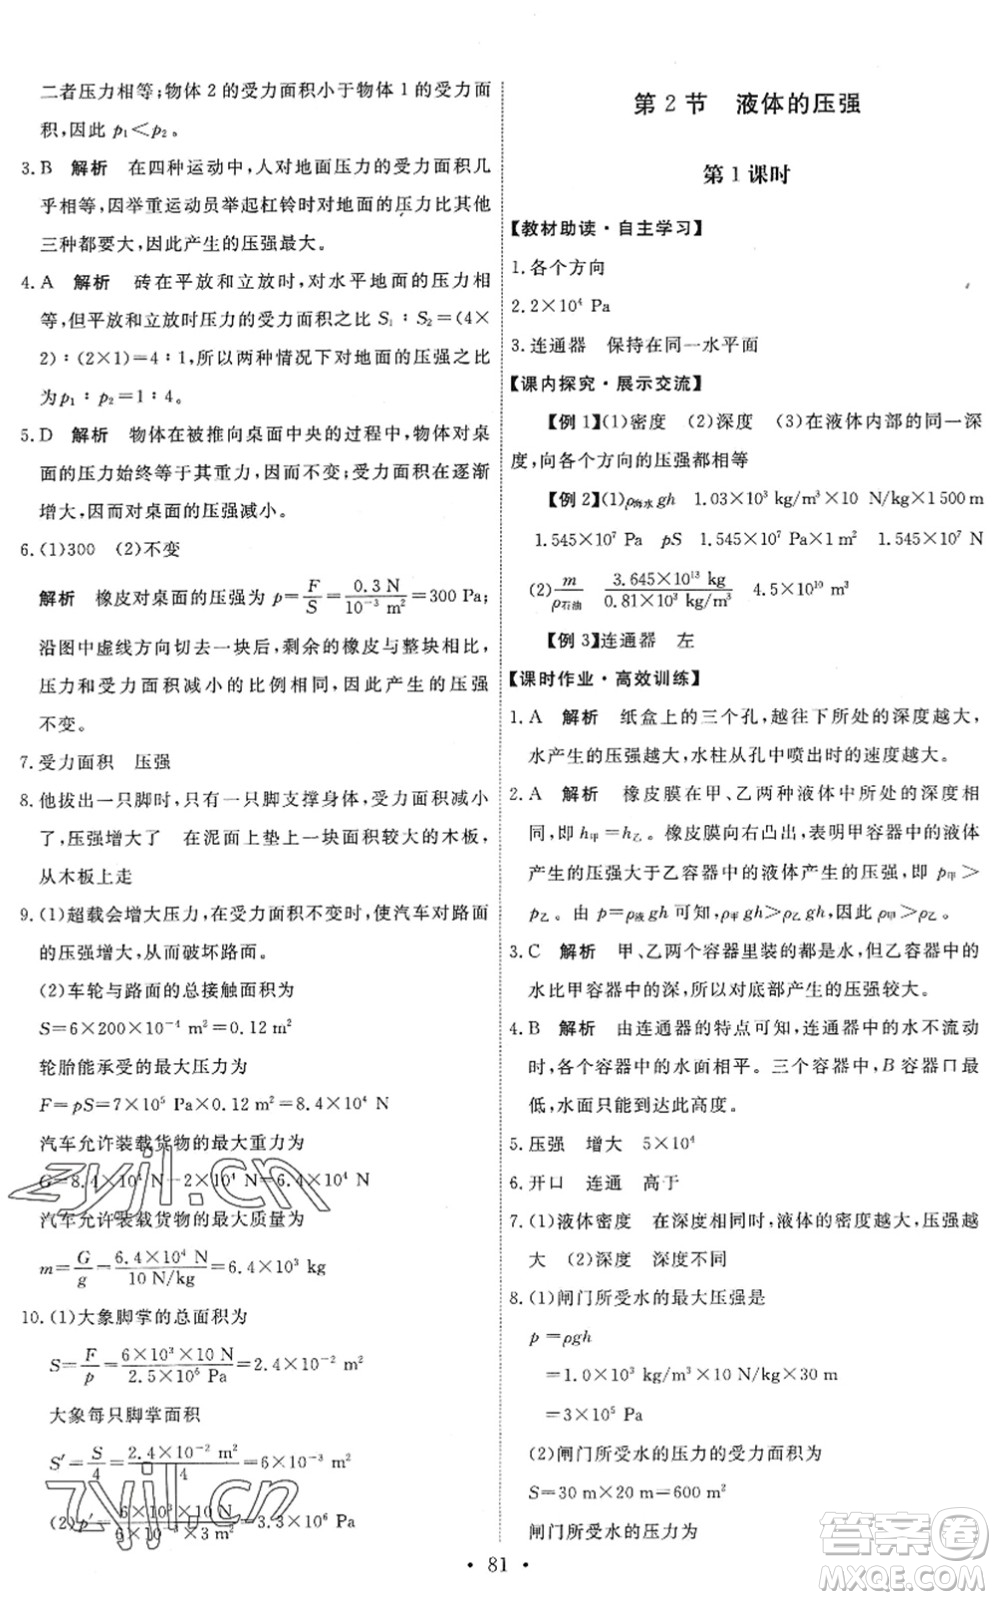 二者压力相等;物体 2 的受力面积小于物体 1 的受力面
积,因此 p₁<p₂。
3. B 解析 在四种运动中,人对地面压力的受力面积几
乎相等,因举重运动员举起杠铃时对地面的压力比其他
三种都要大,因此产生的压强最大。
4. A 解析 砖在平放和立放时,对水平地面的压力相
等,但平放和立放时压力的受力面积之比 S₁∶S₂=(4×
2)∶(2×1)=4∶1,所以两种情况下对地面的压强之比
为 p₁∶p₂=1∶4。
5. D 解析 物体在被推向桌面中央的过程中,物体对桌
面的压力始终等于其重力,因而不变;受力面积在逐渐
增大,因而对桌面的压强减小。
6. (1)300 (2)不变
解析 橡皮对桌面的压强为 p=F/S=0.3 N/10⁻³ m²=300 Pa;
沿图中虚线方向切去一块后,剩余的橡皮与整块比较,
压力和受力面积减小的比例相同,因此产生的压强
不变。
7. 受力面积 压强
8. 他拔出一只脚时,只有一只脚支撑身体,受力面积减小
了,压强增大了 在泥面上垫上一块面积较大的木板,
从木板上走
9. (1)超载会增大压力,在受力面积不变时,使汽车对路面
的压强增大,从而破坏路面。
(2)车轮与路面的总接触面积为
S=6×200×10⁻⁴ m²=0.12 m²
轮胎能承受的最大压力为
F=pS=7×10⁵ Pa×0.12 m²=8.4×10⁴ N
汽车允许装载货物的最大重力为
G=8.4×10⁴ N-2×10⁴ N=6.4×10⁴ N
汽车允许装载货物的最大质量为
m=G/g=6.4×10⁴ N/10 N/kg=6.4×10³ kg
10. (1)大象脚掌的总面积为
S=F/p=6×10³×10 N/2.5×10⁵ Pa=2.4×10⁻² m²
大象每只脚掌面积
S′=S/4=2.4×10⁻² m²/4=6×10⁻³ m²
(2)p′=6×10³×10 N/6×10⁻³×3 m²=3.3×10⁶ Pa
第 2 节 液体的压强
第 1 课时
【教材助读·自主学习】
1. 各个方向
2. 2×10⁴ Pa
3. 连通器 保持在同一水平面
【课内探究·展示交流】
【例 1】(1)密度 (2)深度 (3)在液体内部的同一深
度,向各个方向的压强都相等
【例 2】(1)ρ海水gh 1.03×10³ kg/m³×10 N/kg×1 500 m
1.545×10⁷ Pa pS 1.545×10⁷ Pa×1 m² 1.545×10⁷ N
(2)m/ρ石油 3.645×10¹³ kg/0.81×10³ kg/m³ 4.5×10¹⁰ m³
【例 3】连通器 左
【课时作业·高效训练】
1. A 解析 纸盒上的三个孔,越往下所处的深度越大,
水产生的压强越大,水柱从孔中喷出时的速度越大。
2. A 解析 橡皮膜在甲、乙两种液体中所处的深度相
同,即 h甲=h乙。橡皮膜向右凸出,表明甲容器中的液体
产生的压强大于乙容器中的液体产生的压强,即 p甲>
p乙。由 p=ρ液gh 可知,ρ甲gh>ρ乙gh,因此 ρ甲>ρ乙。
3. C 解析 甲、乙两个容器里装的都是水,但乙容器中的
水比甲容器中的深,所以对底部产生的压强较大。
4. B 解析 由连通器的特点可知,连通器中的水不流动
时,各个容器中的水面相平。三个容器中,B 容器口最
低,水面只能到达此高度。
5. 压强 增大 5×10⁴
6. 开口 连通 高于
7. (1)液体密度 在深度相同时,液体的密度越大,压强越
大 (2)深度 深度不同
8. (1)闸门所受水的最大压强是
p =ρgh
=1.0×10³ kg/m³×10 N/kg×30 m
=3×10⁵ Pa
(2)闸门所受水的压力的受力面积为
S=30 m×20 m=600 m²
闸门所受水的压力为
• 81 •
zyjl.cn
zyjl.cn
答案圈
MXQE.COM